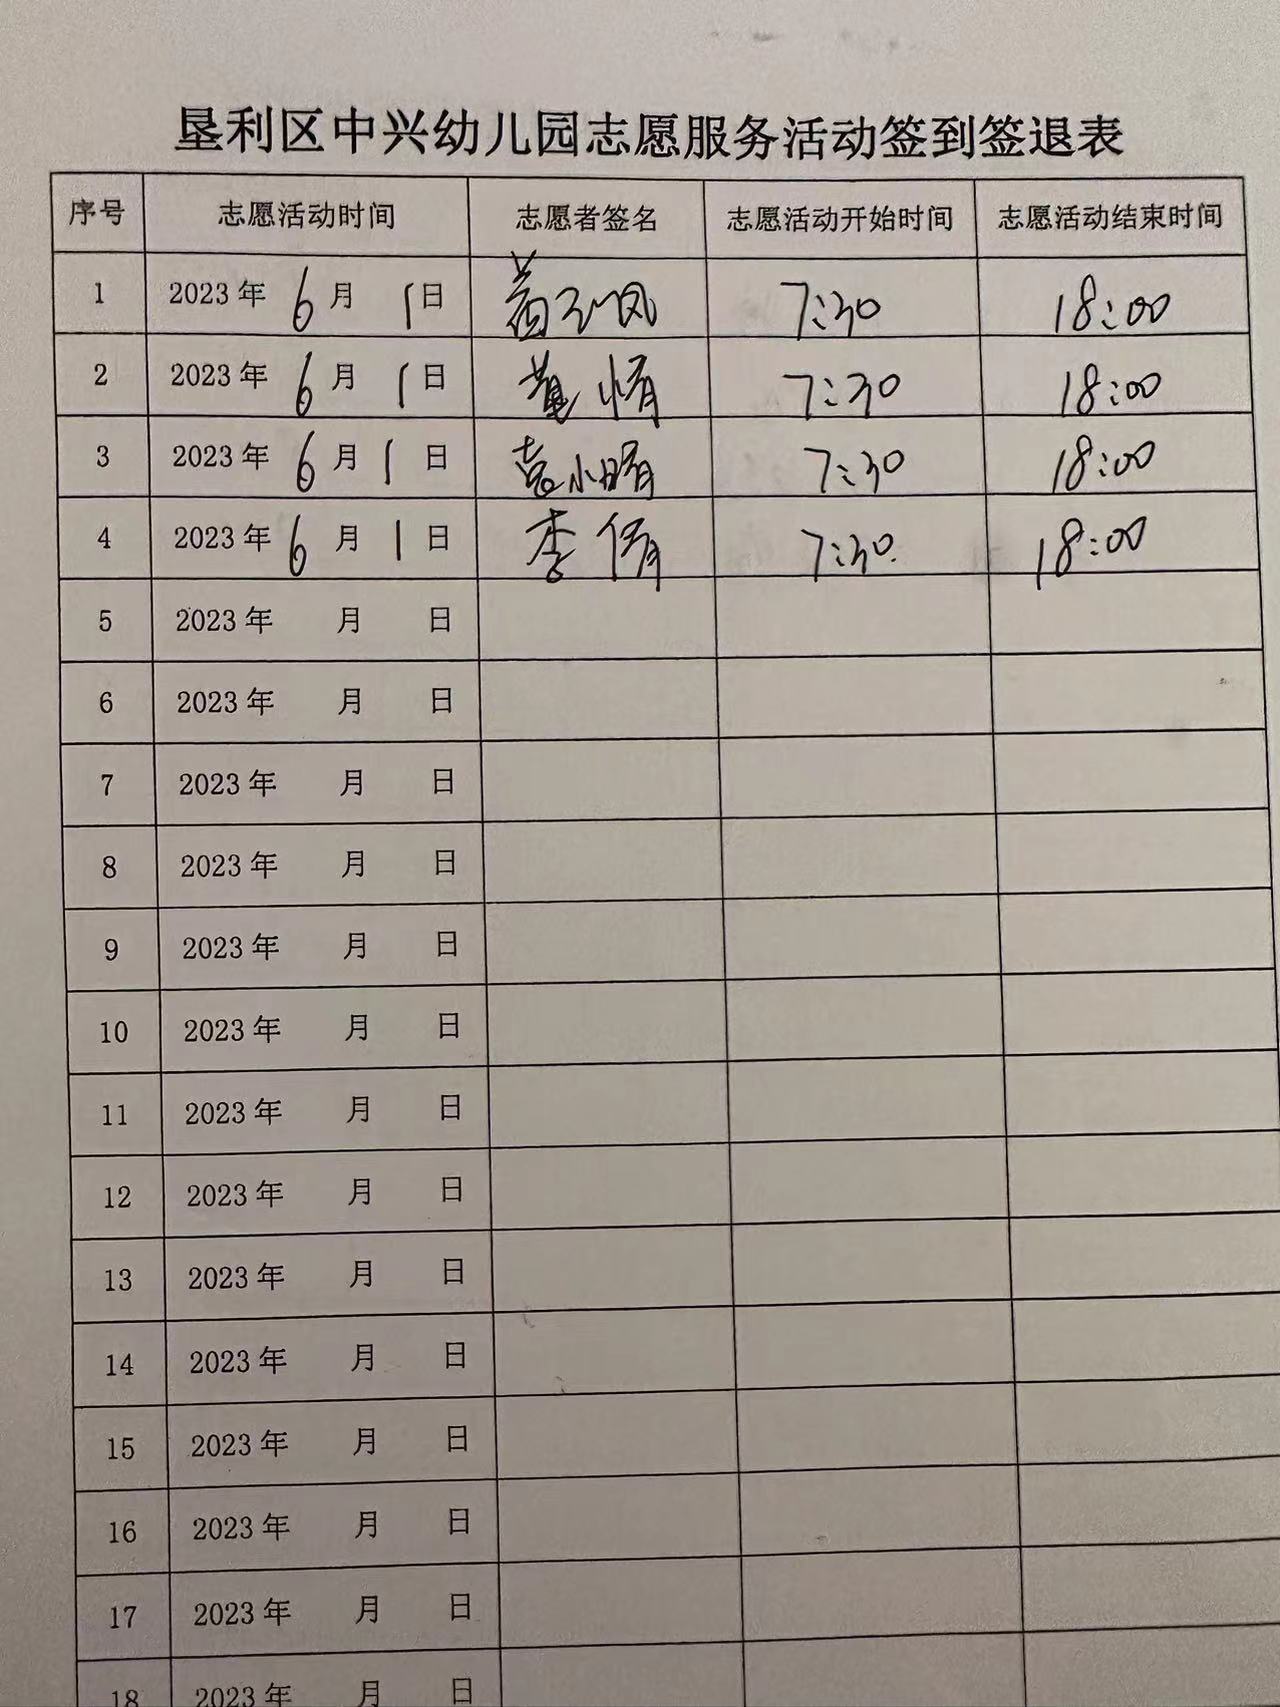 垦利区中兴幼儿园志愿服务活动签到签退表
序号 志愿活动时间 志愿者签名 志愿活动开始时间 志愿活动结束时间
1 2023年 6月 1日 7:30 18:00
2 2023年 6月 1日 7:30 18:00
3 2023年 6月 1日 袁小晴 7:30 18:00
4 2023年 6月 1日 李倩 7:30 18:00
5 2023年 月 日
6 2023年 月 日
7 2023年 月 日
8 2023年 月 日
9 2023年 月 日
10 2023年 月 日
11 2023年 月 日
12 2023年 月 日
13 2023年 月 日
14 2023年 月 日
15 2023年 月 日
16 2023年 月 日
17 2023年 月 日
18 2023年 月 日